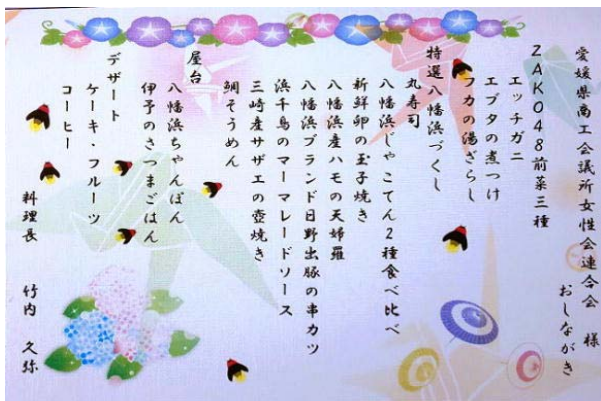 愛媛県商工会議所女性会連合会 様
おしながき
ZAKO48前菜三種
エッチガニ
エブタの煮つけ
フカの湯ざらし
特選八幡浜づくし
丸寿司
八幡浜じゃこてん2種食べ比べ
新鮮卵の玉子焼き
八幡浜産ハモの天婦羅
八幡浜ブランド日野出豚の串カツ
浜千鳥のマーマレードソース
三崎産サザエの壺焼き
鯛そうめん
屋台
八幡浜ちゃんぽん
伊予のさつまごはん
デザート
ケーキ・フルーツ
コーヒー
料理長 竹内 久弥